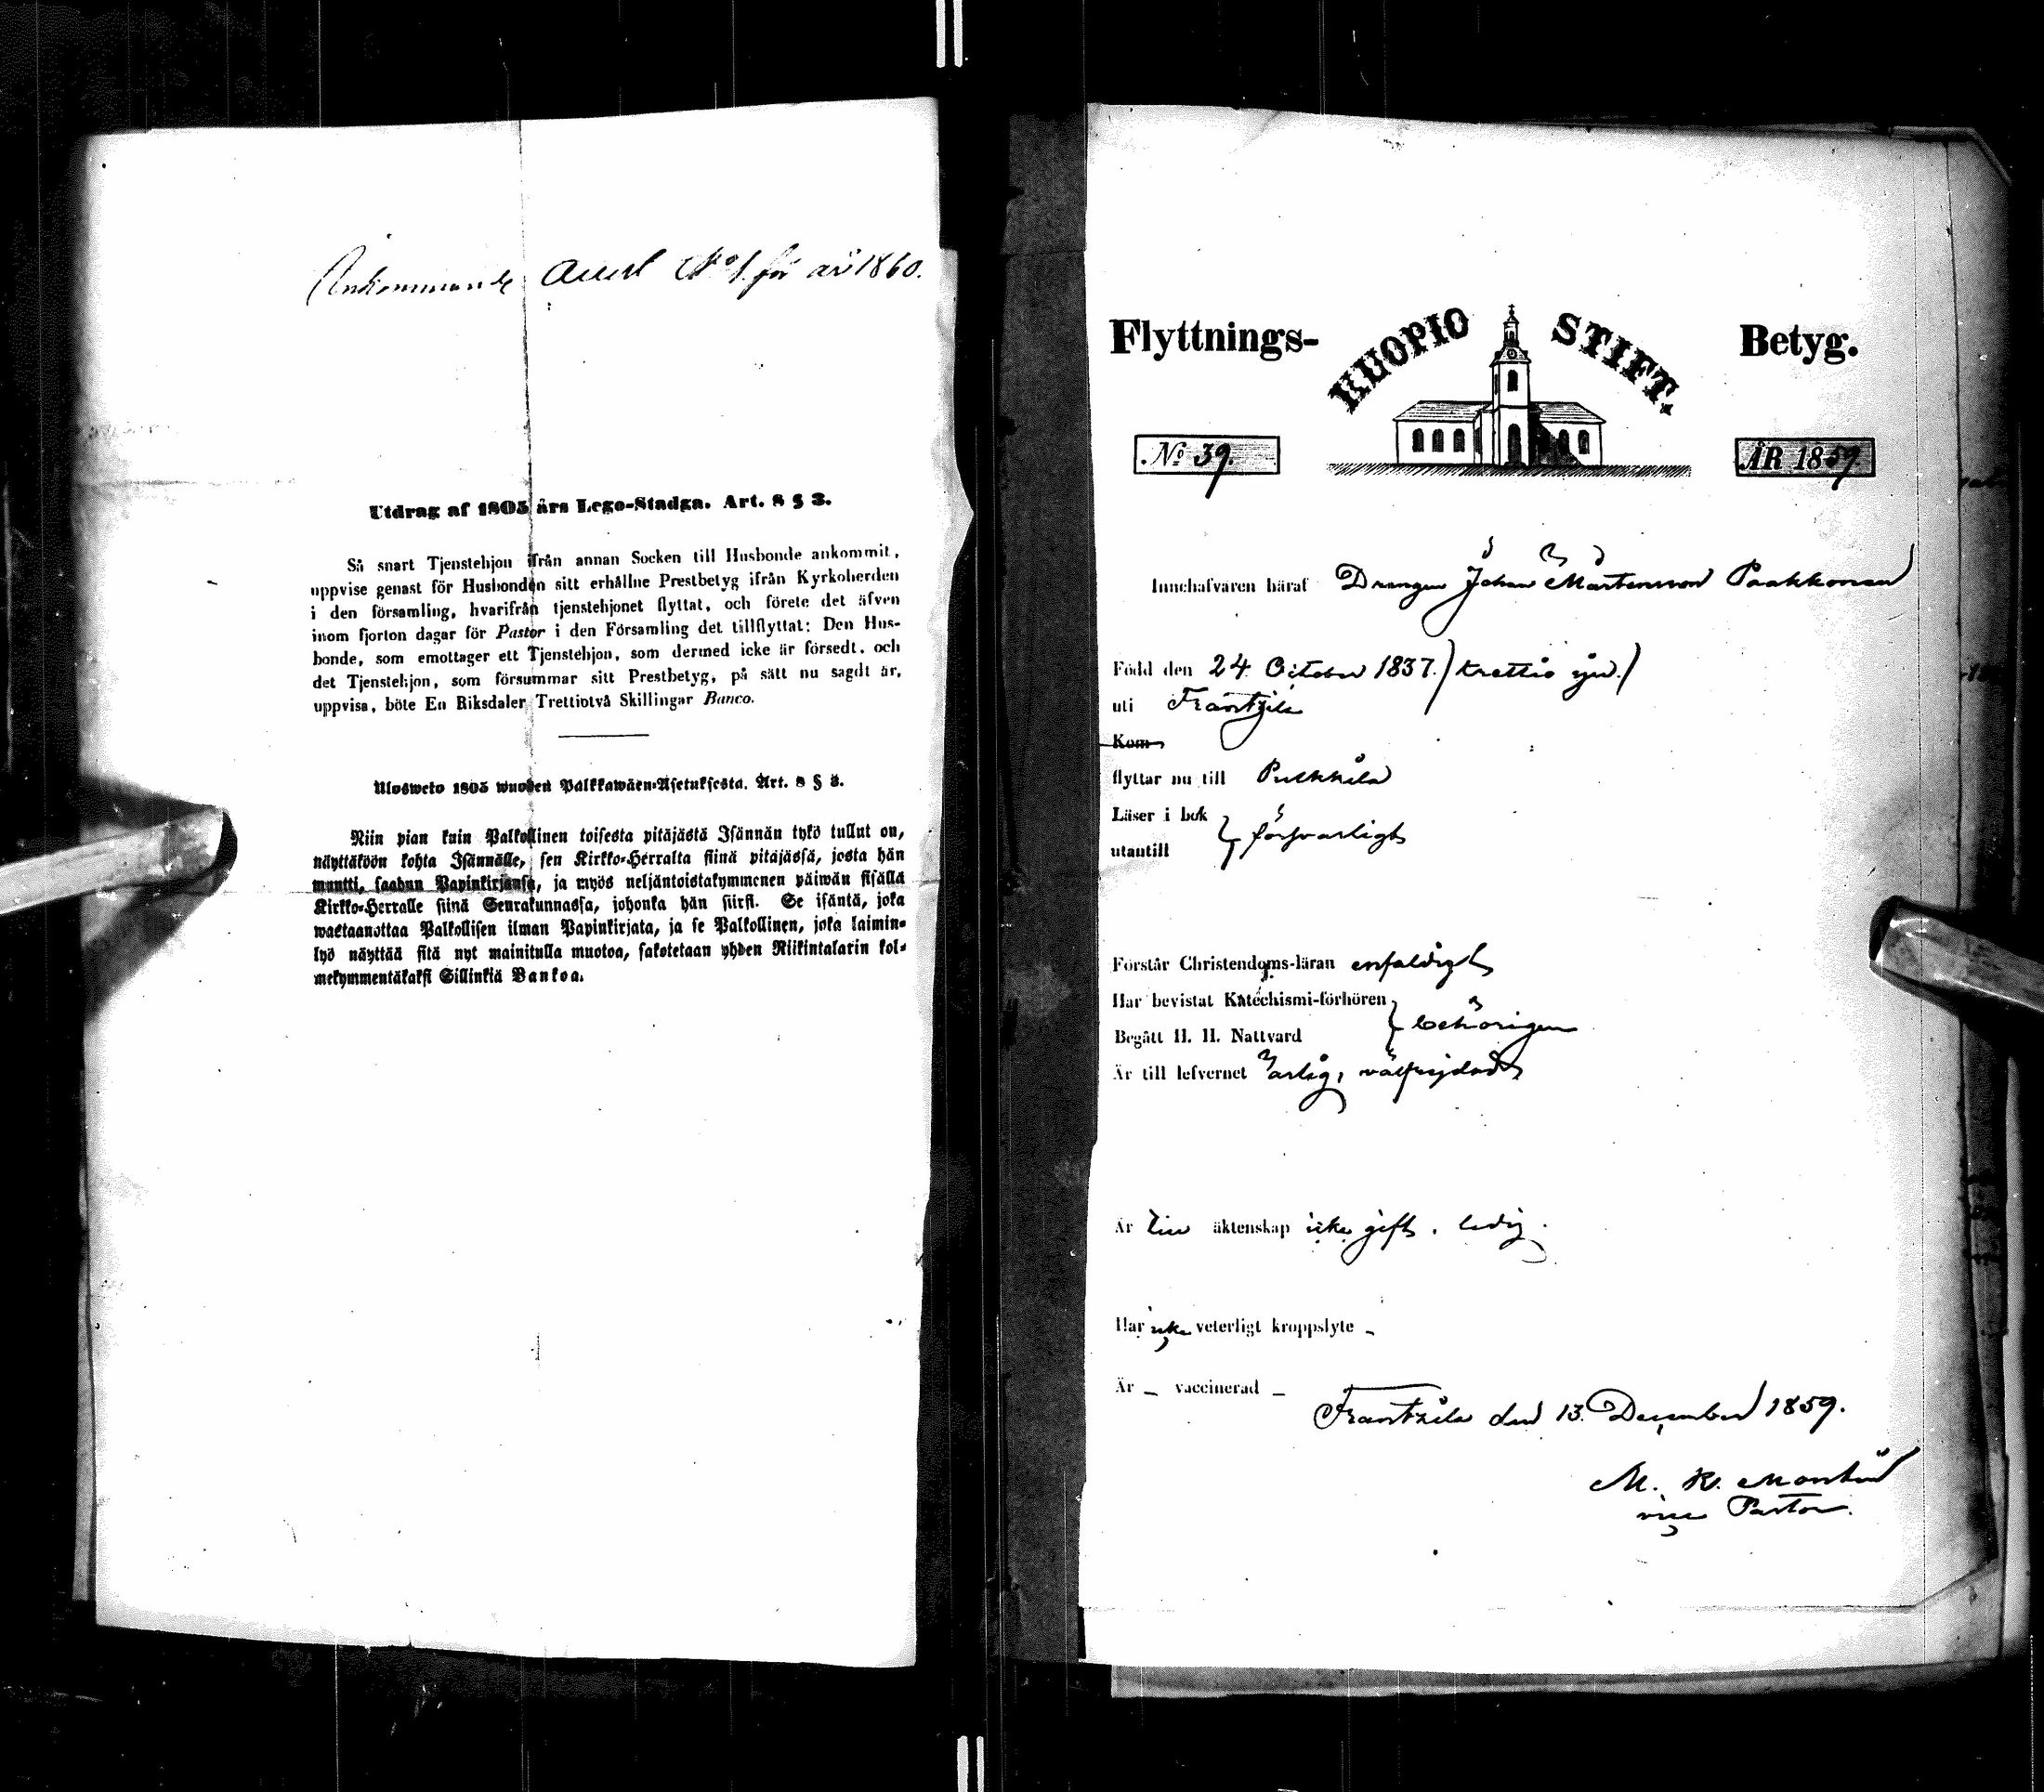 Ankommande Attest No 1 för år 1860.
Utdrag af 1805 års Lego-Stadga. Art. 8 § 3.
Så snart Tjenstehjon ifrån annan Socken till Husbonde ankommit,
uppvise genast för Husbonden sitt erhållne Prestbetyg ifrån Kyrkoherden
i den församling, hvarifrån tjenstehjonet flyttat, och förete det äfven
inom fjorton dagar för Pastor i den Församling det tillflyttat: Den Hus-
bonde, som emottager ett Tjenstehjon, som dermed icke är försedt, och
det Tjenstehjon, som försummar sitt Prestbetyg, på sätt nu sagdt är,
uppvisa, böte En Riksdaler Trettiotvå Skillingar Banco.
Ulosweto 1805 wuoden Palkkawäen-Asetuksesta. Art. 8 § 3.
Niin pian kuin Palkollinen toisesta pitäjästä Isännän tykö tullut on,
näyttäköön kohta Isännälle, sen Kirkko-Herralta siinä pitäjässä, josta hän
muutti, saadun Papinkirjansa, ja myös neljäntoistakymmenen päiwän sisällä
Kirkko-Herralle siinä Seurakunnassa, johonka hän siirsi. Se isäntä, joka
wastaanottaa Palkollisen ilman Papinkirjata, ja se Palkollinen, joka laimin-
lyö näyttää sitä nyt mainitulla muotoa, sakotetaan yhden Riikintalarin kol-
mekymmentäkaksi Sillinkiä Bankoa.
Flyttnings- KUOPIO STIFT. Betyg.
No 39. ÅR 1859.
Innehafvaren häraf Drengen Johan Mårtensson Paakkonen
Född den 24 October 1837. / trettio sju. /
uti Frantzila
Kom
flyttar nu till Pulkkila
Läser i bok
utantill } försvarligt
Förstår Christendoms-läran enfaldigt
Har bevistat Katechismi-förhören
Begått H. H. Nattvard } behörigen
Är till lefvernet ärlig, välfrejdad
Är till äktenskap icke gift. ledig.
Har icke veterligt kroppslyte -
Är - vaccinerad -
Frantzila den 13. December 1859.
M. W.
vice Pastor.